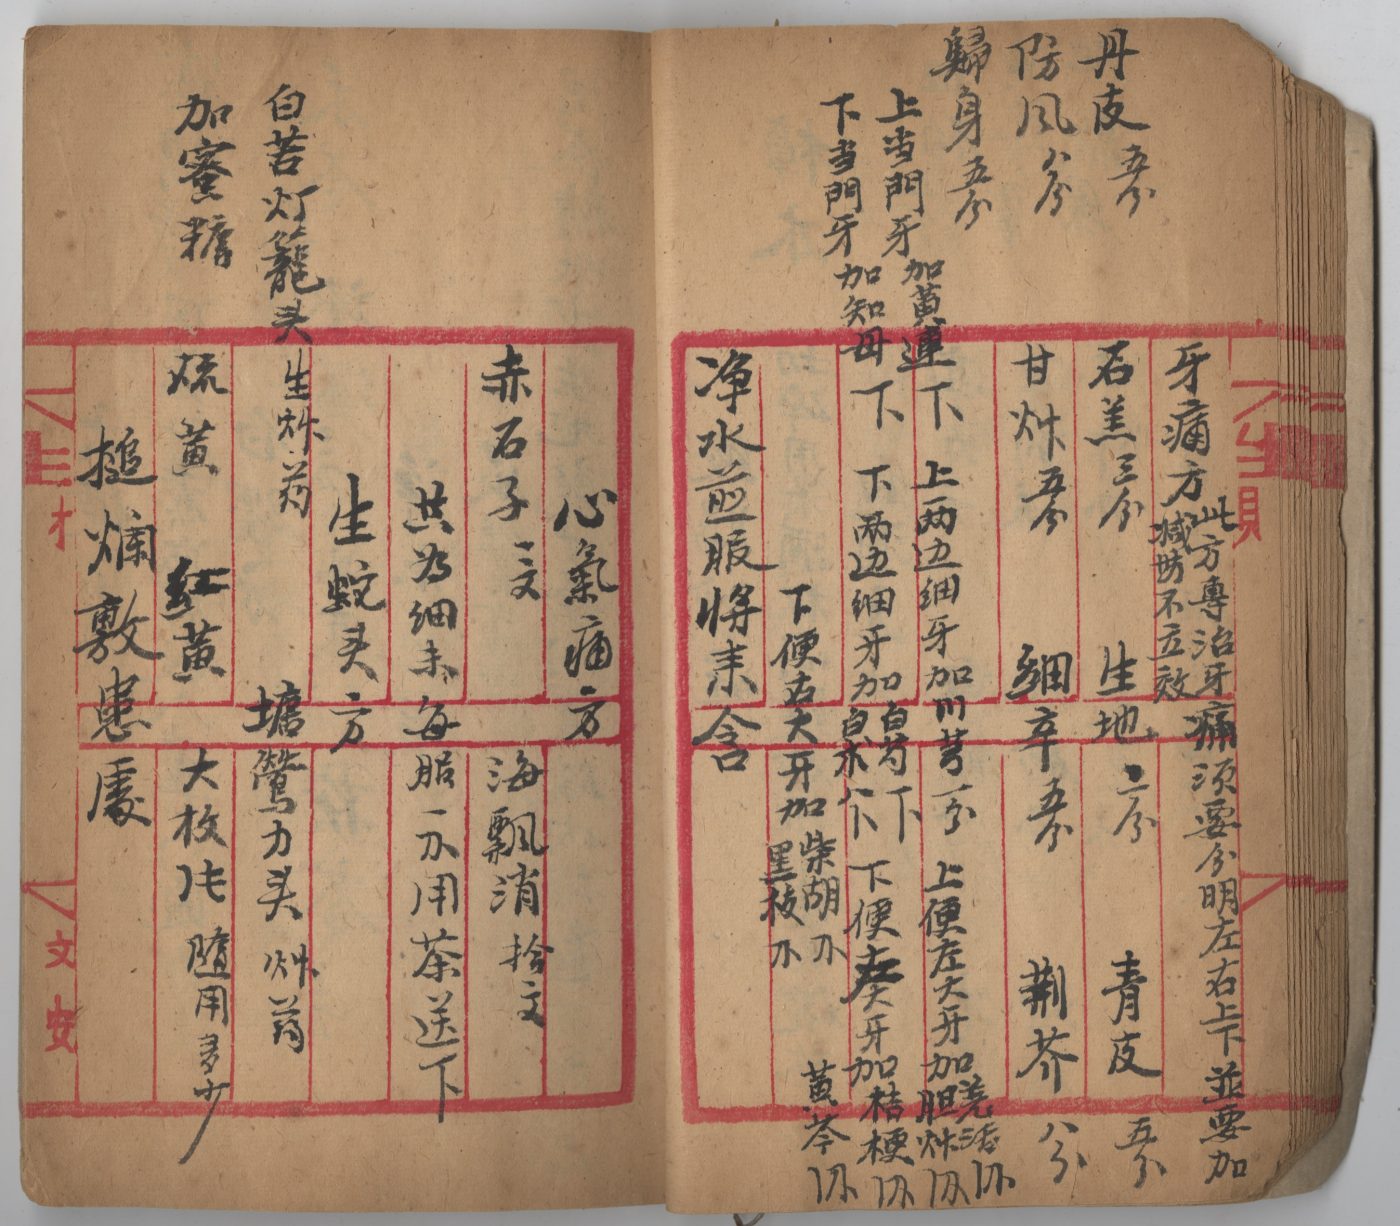 牙痛方 此方專治牙痛須要分明左右上下並要加
減方不立效
丹皮五分 石羔三分 生地二分 青皮五分
防風八分 甘艸五分 細辛五分 荆芥八分
歸身五分
上当門牙加黄連下 上两边细牙加川芎一分 上便左大牙加羌活 胆艸
下当門牙加知母下 下两边细牙加白芍 白术八下 下便大牙加桔梗
下便右大牙加柴胡 黑枝 黄芩
净水煎服將来含
心氣痛方
赤石子二文 海飄消拾文
共为细末每服一用茶送下
生蛇头方
白苦灯籠头生艸药 塘鶯力头艸药
加蜜糖 硫黄 紅黄 大枚片 随用多少
搥爛敷患處
三才
文安